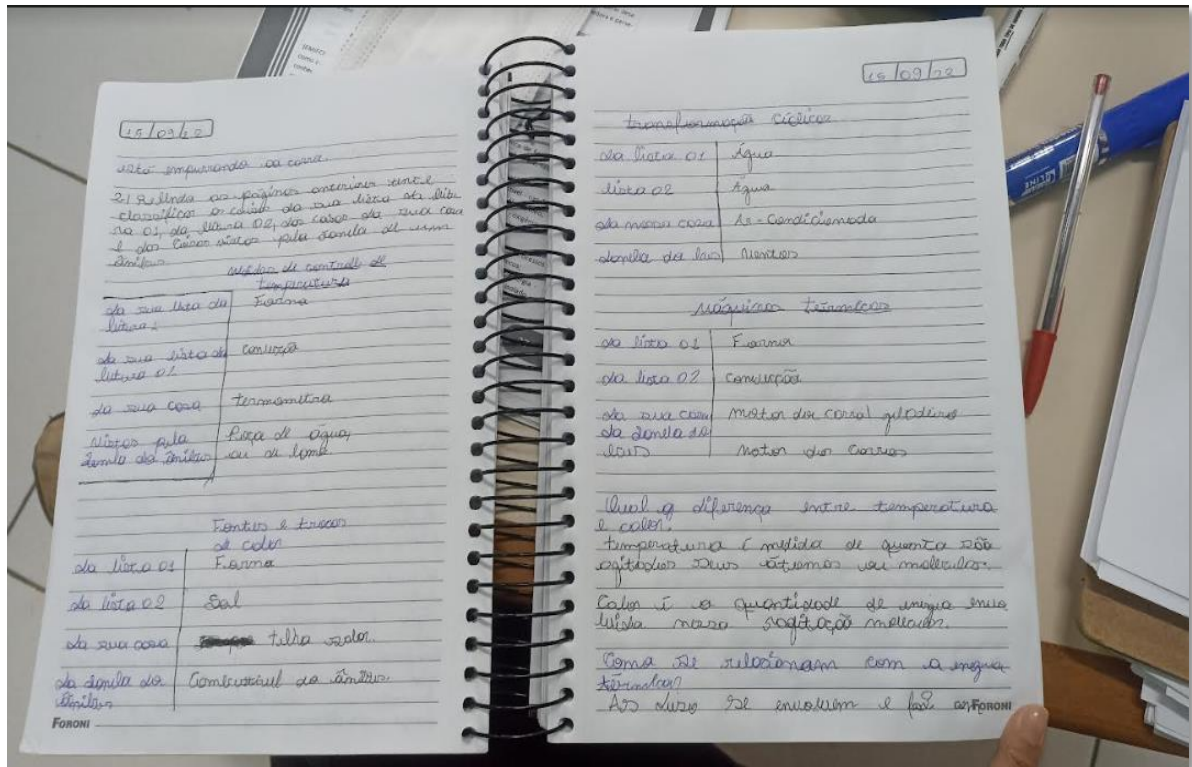 15/09/22
está empurrando o carro.
2) Relendo as páginas anteriores tente
classificar a coisas da sua lista da leitu
ra 01, da leitura 02, das coisas da sua casa
e das coisas vistas pela janela de um
ônibus
Medidas de controle de
temperatura
da sua lista da Forno
leitura 1
da sua lista da convecção
leitura 02
da sua casa termometro
Vistos pela Poça de água,
Janela do ônibus ou de lama
Fontes e trocas
de calor
da lista 01 Forno
da lista 02 Sol
da sua casa telha solar
da janela do Combustível do ônibus
ônibus
FORONI
15/09/22
transformação Cíclicas
da lista 01 Água
lista 02 Água
da nossa casa Ar-Condicionado
Janela do bus Ventos
Máquinas térmicas
da lista 01 Forno
da lista 02 Convecção
da sua casa motor do geladeira
da Janela do
bus Motor dos Carros
Qual a diferença entre temperatura
e calor.
temperatura é medida de quanto são
agitados seus átomos ou moléculas.
Calor é a quantidade de energia envo
lvida nessa agitação molecular.
Como se relacionam com a
térmicas?
As duas se envolvem e
FORONI